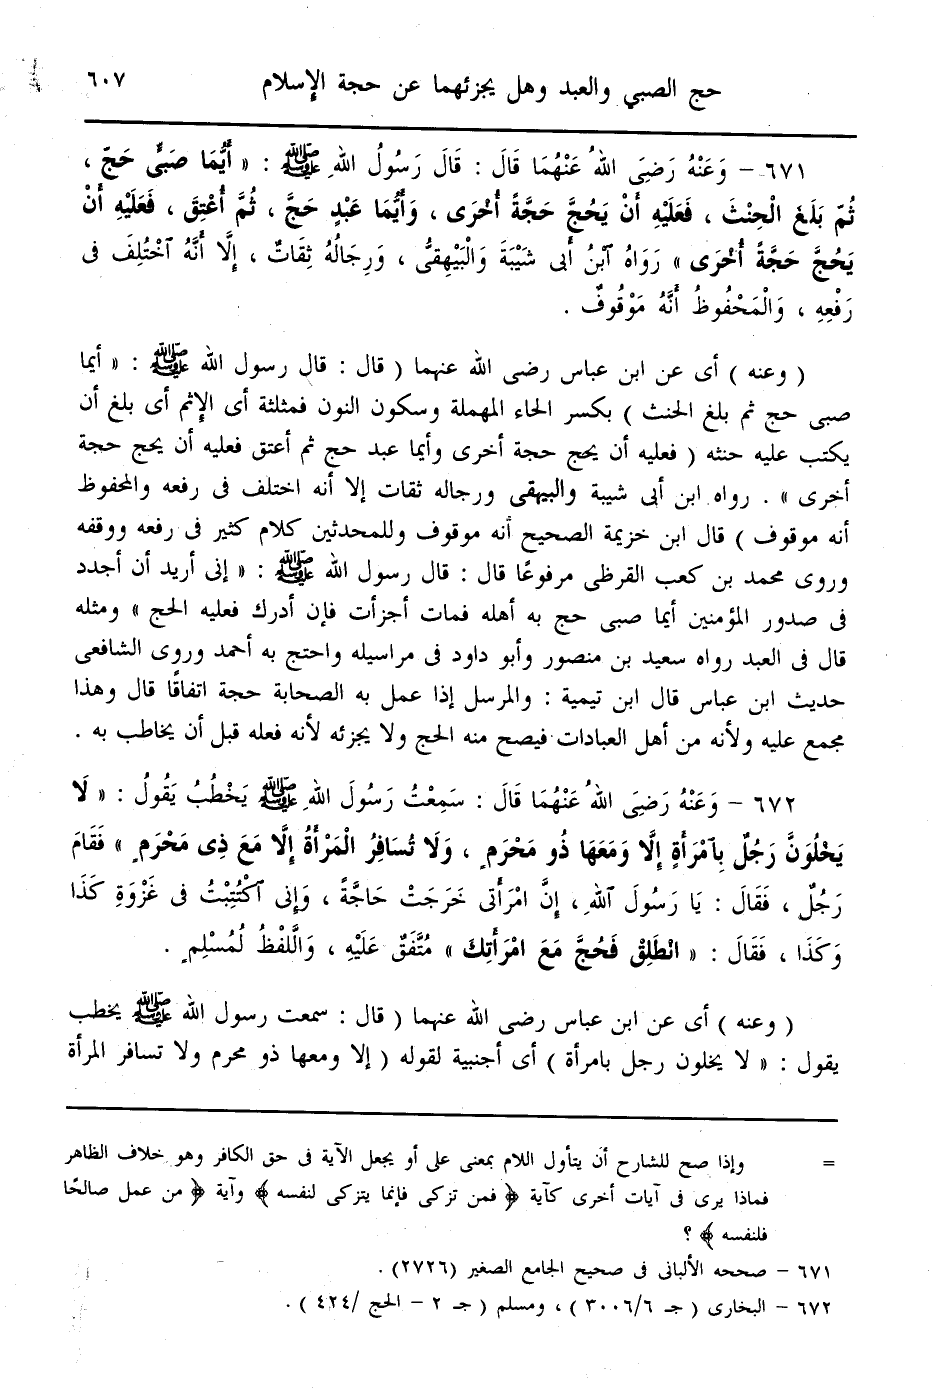 حج الصبي والعبد وهل يجزئهما عن حجة الإسلام ٦٠٧
٦٧١ – وَعَنْهُ رَضِيَ اللهُ عَنْهُمَا قَالَ : قَالَ رَسُولُ اللهِ ﷺ : « أَيُّمَا صَبِىٍّ حَجَّ ،
ثُمَّ بَلَغَ الْحِنْثَ ، فَعَلَيْهِ أَنْ يَحُجَّ حَجَّةً أُخْرَى ، وَأَيُّمَا عَبْدٍ حَجَّ ، ثُمَّ أُعْتِقَ ، فَعَلَيْهِ أَنْ
يَحُجَّ حَجَّةً أُخْرَى » رَوَاهُ ٱبْنُ أَبى شَيْبَةَ وَالْبَيْهِقىُّ ، وَرِجَالُهُ ثِقَاتٌ ، إِلَّا أَنَّهُ ٱخْتُلِفَ فى
رَفْعِهِ ، وَالْمَحْفُوظُ أَنَّهُ مَوْقُوفٌ .
( وعنه ) أى عن ابن عباس رضى الله عنهما ( قال : قال رسول الله ﷺ : « أيما
صبى حج ثم بلغ الحنث ) بكسر الحاء المهملة وسكون النون فمثلثة أى الإثم أى بلغ أن
يكتب عليه حنثه ( فعليه أن يحج حجة أخرى وأيما عبد حج ثم أعتق فعليه أن يحج حجة
أخرى » . رواه ابن أبى شيبة والبيهقى ورجاله ثقات إلا أنه اختلف فى رفعه والمحفوظ
أنه موقوف ) قال ابن خزيمة الصحيح أنه موقوف وللمحدثين كلام كثير فى رفعه ووقفه
وروى محمد بن كعب القرظى مرفوعًا قال : قال رسول الله ﷺ : « إنى أريد أن أجدد
فى صدور المؤمنين أيما صبى حج به أهله فمات أجزأت فإن أدرك فعليه الحج » ومثله
قال فى العبد رواه سعيد بن منصور وأبو داود فى مراسيله واحتج به أحمد وروى الشافعى
حديث ابن عباس قال ابن تيمية : والمرسل إذا عمل به الصحابة حجة اتفاقًا قال وهذا
مجمع عليه ولأنه من أهل العبادات فيصح منه الحج ولا يجزئه لأنه فعله قبل أن يخاطب به .
٦٧٢ – وَعَنْهُ رَضِيَ اللهُ عَنْهُمَا قَالَ : سَمِعْتُ رَسُولَ اللهِ ﷺ يَخْطُبُ يَقُولُ : « لَا
يَخْلُوَنَّ رَجُلٌ بِٱمْرَأَةٍ إِلَّا وَمَعَهَا ذُو مَحْرَمٍ ، وَلَا تُسَافِرُ الْمَرْأَةُ إِلَّا مَعَ ذِى مَحْرَمٍ » فَقَامَ
رَجُلٌ ، فَقَالَ : يَا رَسُولَ اللهِ ، إِنَّ امْرَأَتى خَرَجَتْ حَاجَّةً ، وَإِنى ٱكْتُتِبْتُ فى غَزْوَةِ كَذَا
وَكَذَا ، فَقَالَ : « انْطَلِقْ فَحُجَّ مَعَ امْرَأَتِكَ » مُتَّفَقٌ عَلَيْهِ ، وَالَّلفْظُ لُمُسْلِمٍ .
( وعنه ) أى عن ابن عباس رضى الله عنهما ( قال : سمعت رسول الله ﷺ يخطب
يقول : « لا يخلون رجل بامرأة ) أى أجنبية لقوله ( إلا ومعها ذو محرم ولا تسافر المرأة
= وإذا صح للشارح أن يتأول اللام بمعنى على أو يجعل الآية فى حق الكافر وهو خلاف الظاهر
فماذا يرى فى آيات أخرى كآية ﴿ فمن تزكى فإنما يتزكى لنفسه ﴾ وآية ﴿ من عمل صالحًا
فلنفسه ﴾ ؟
٦٧١ – صححه الألبانى فى صحيح الجامع الصغير (٢٧٢٦) .
٦٧٢ – البخارى ( جـ ٣٠٠٦/٦ ) ، ومسلم ( جـ ٢ – الحج /٤٢٤ ) .